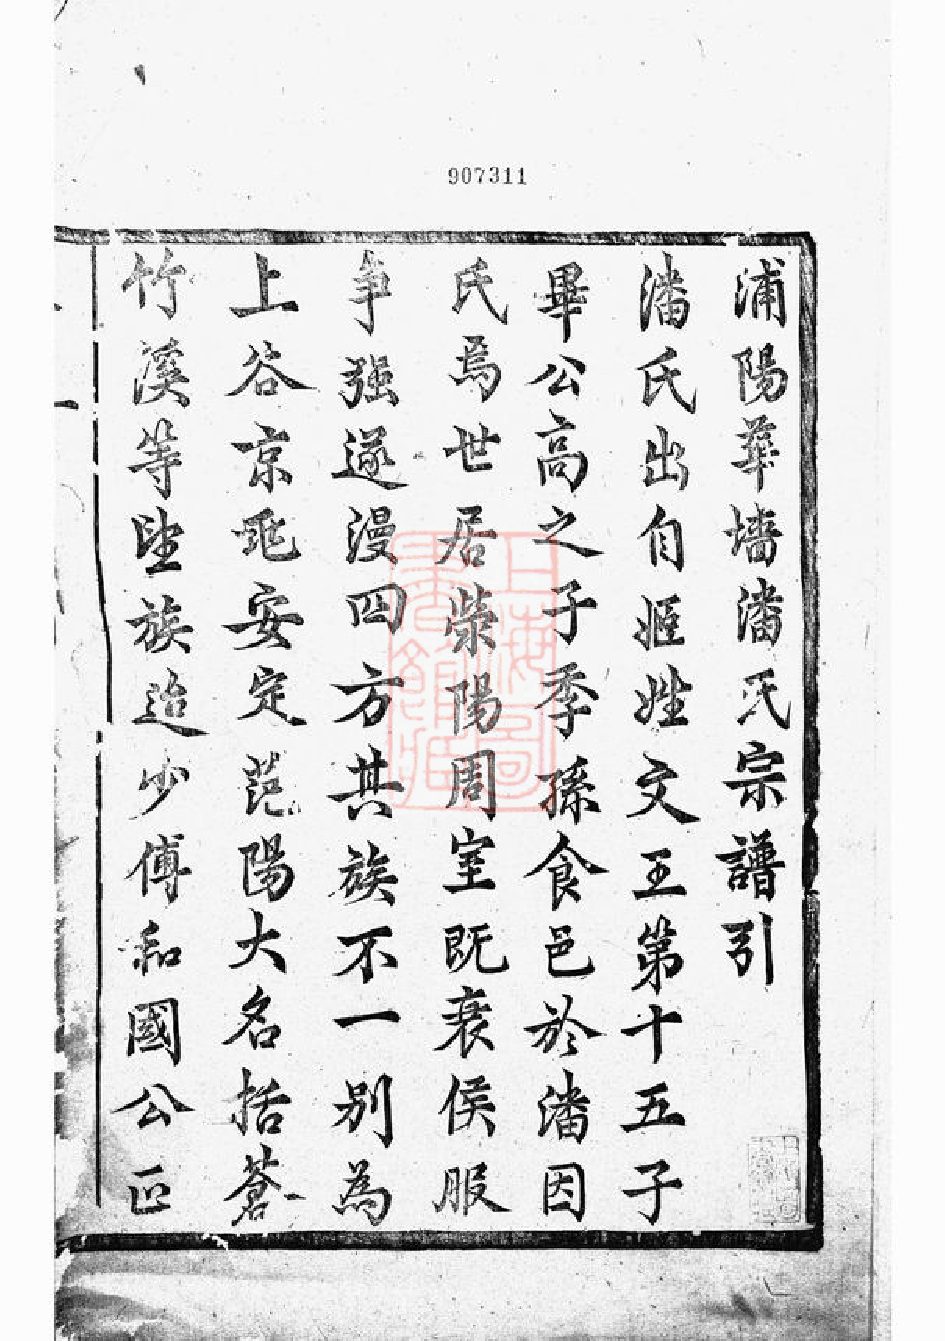 907311
浦陽華墻潘氏宗譜引
潘氏出自姬姓文王第十五子
畢公高之子季孫食邑於潘因
氏焉世居滎陽周室既衰侯服
爭强遂漫四方其族不一別為
上谷京兆安定范陽大名括蒼
竹溪等望族迨少傅和國公正
上海圖書館藏